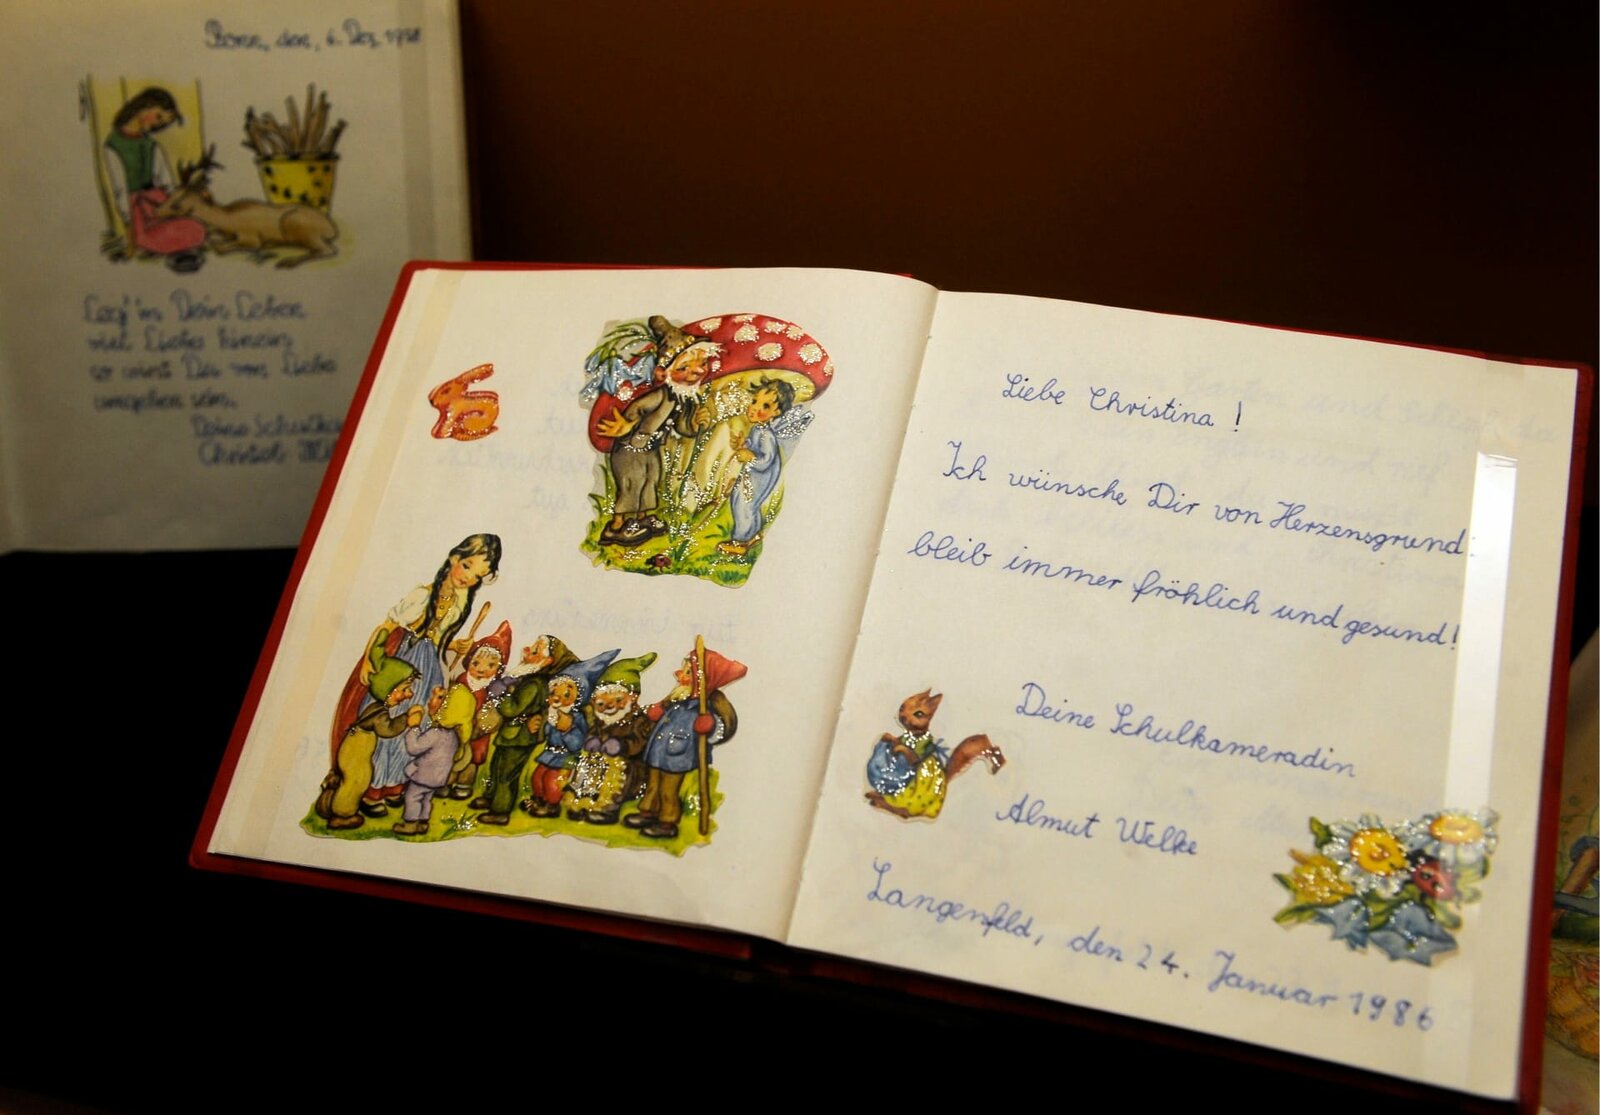 Bonn, den, 6. Dez.
Leg' in Dein Leben
viel Liebe hinein
so wirst Du von Liebe
umgeben sein.
Deine
Christel
Liebe Christina!
Ich wünsche Dir von Herzensgrund
bleib immer fröhlich und gesund!
Deine Schulkameradin
Almut Welke
Langenfeld, den 24. Januar 1986